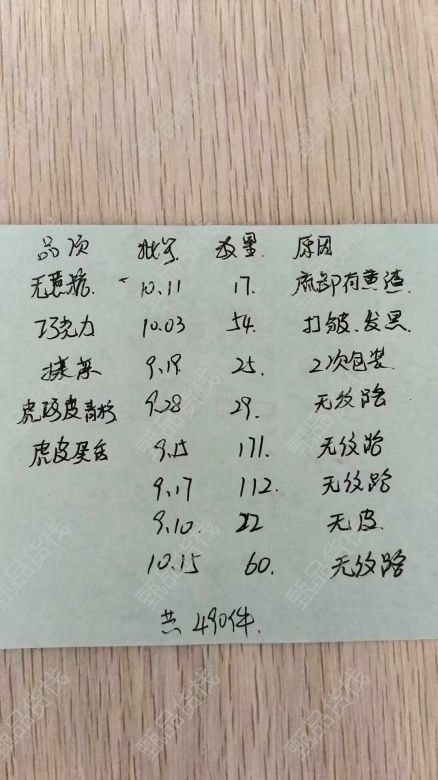 品项 批号 数量 原因
无蔗糖 10.11 17. 底部有黄渣
巧克力 10.03 54. 打皱、发黑
抹茶 9.19 25. 2次包装
虎皮 9.28 29. 无纹路
虎皮蛋 9.15 171. 无纹路
9.17 112. 无纹路
9.10. 22 无皮
10.15 60. 无纹路
共490件.
甄品货栈